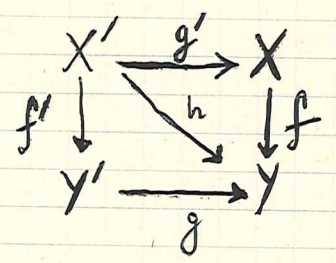 X' g' X
f' h f
Y' g Y